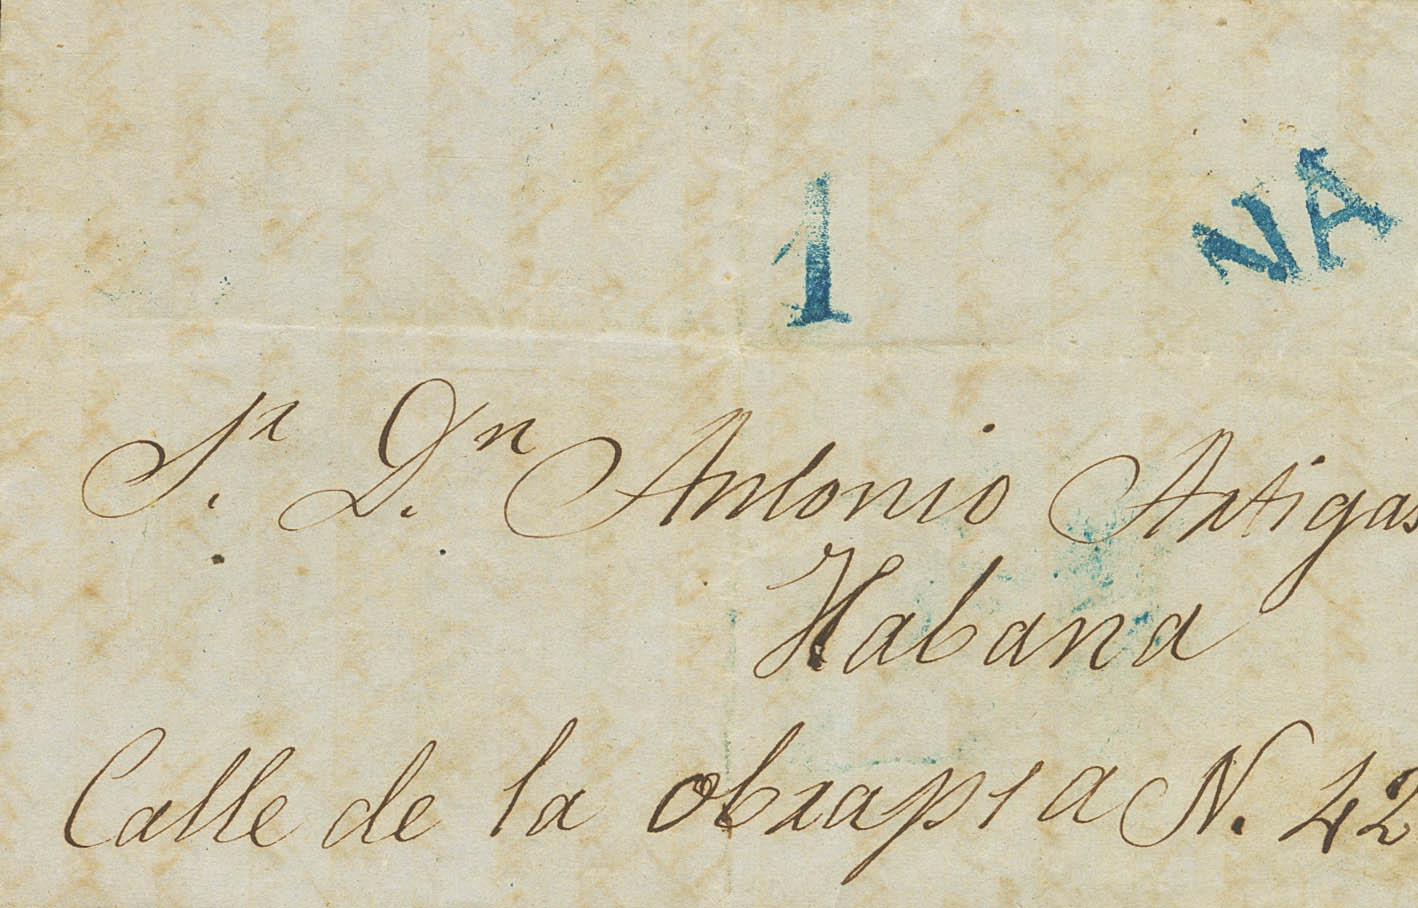 1 NA
Sr. Dn. Antonio Artigas
Habana
Calle de la obrapia N. 42